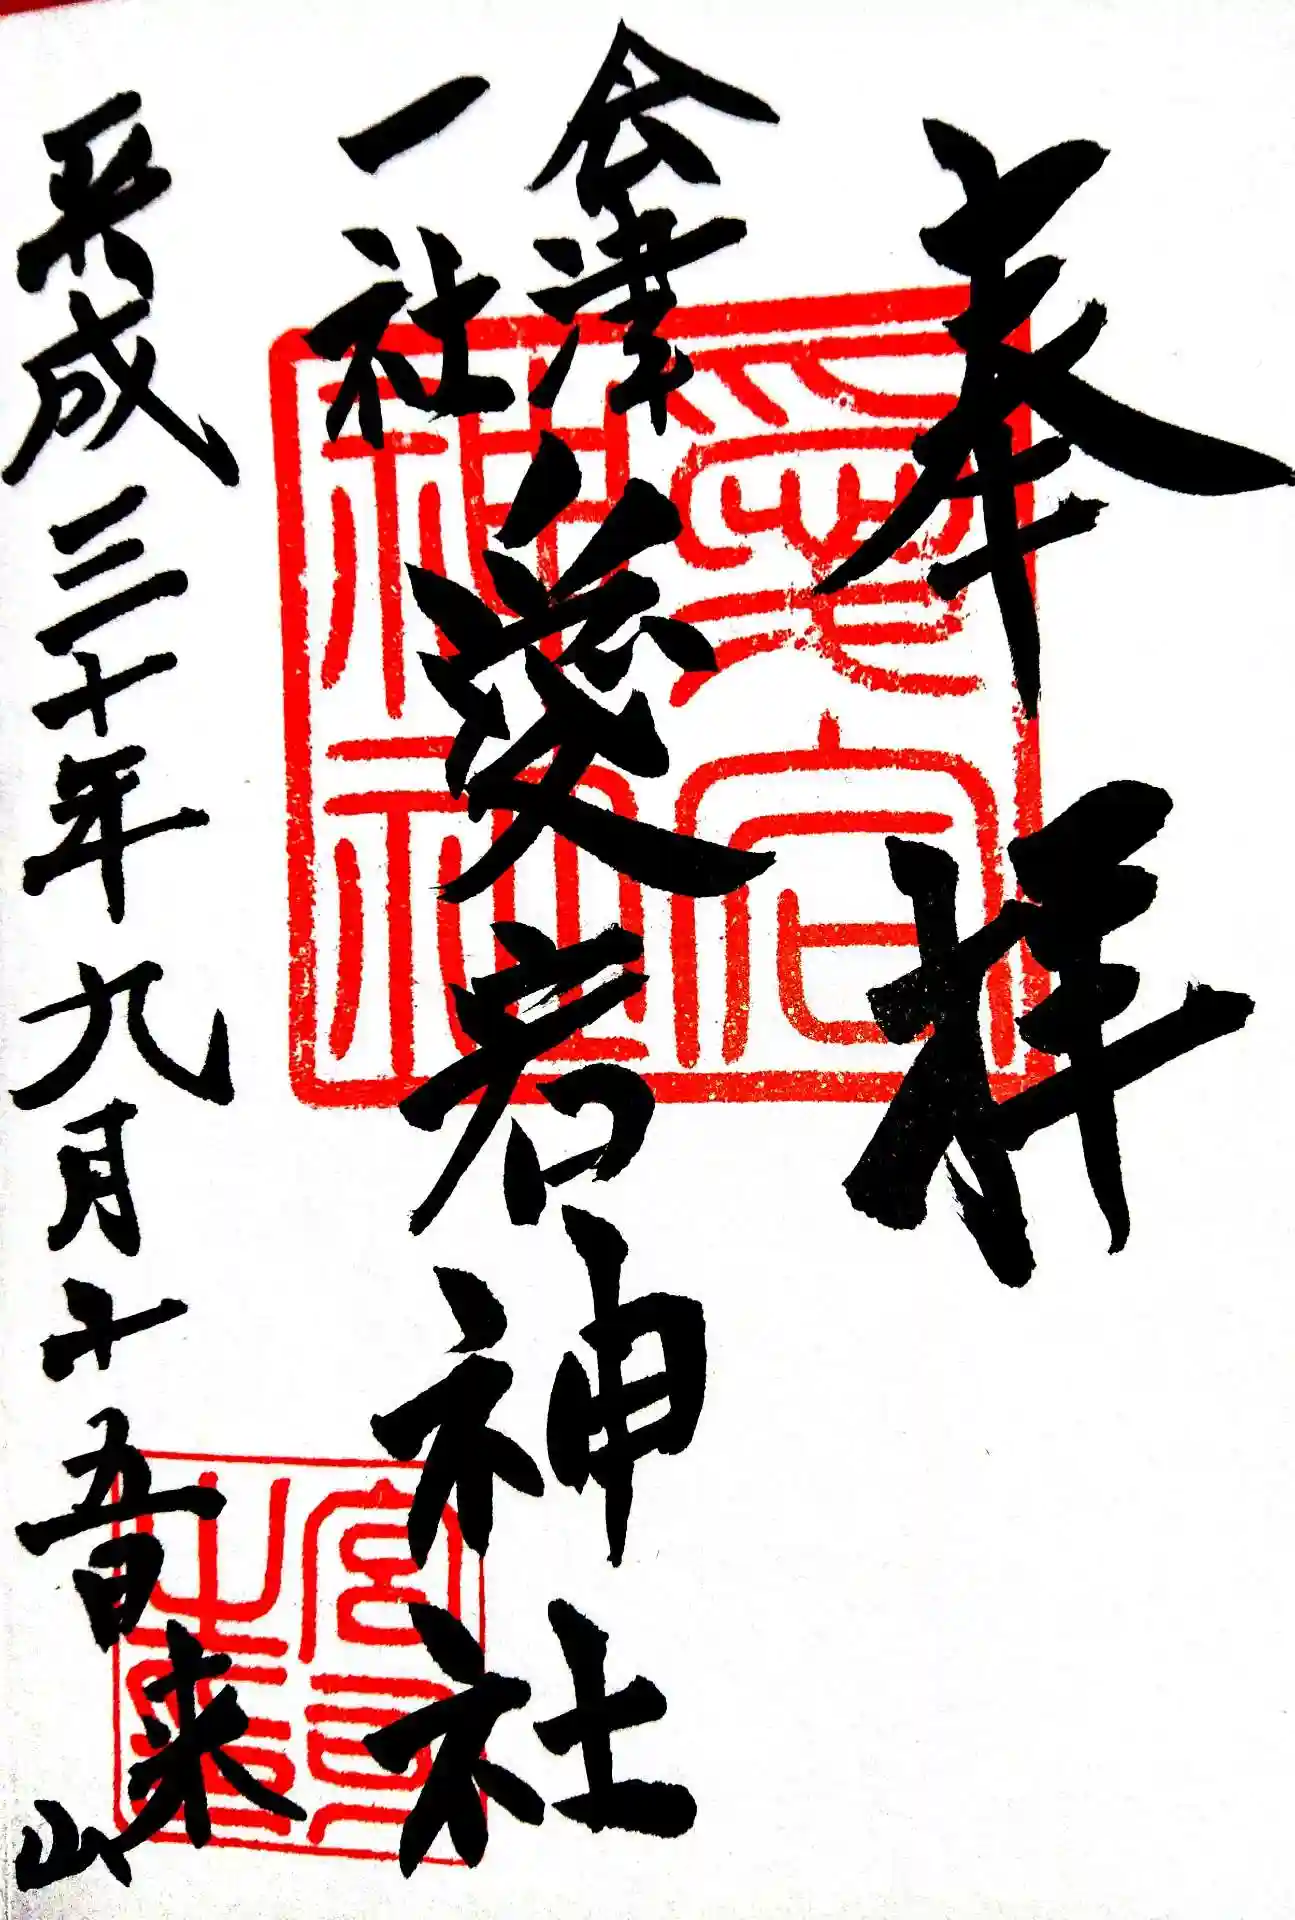 奉拝
会津
一社
愛宕神社
平成三十年九月十五日
来山
愛宕
神
宮司
之